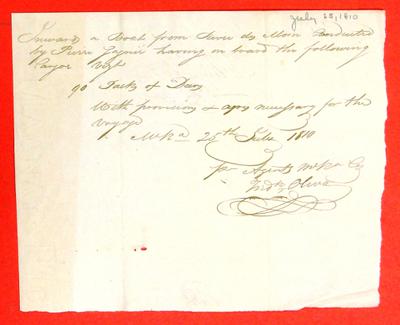 July 25, 1810
Inward a Boat from River du Moin Conducted
by Pierre having on board the following
Cargo Vizt
90 Packs of Deer
With provisions & necessary for the
Voyage
Mka 25th July 1810
for Agents Mka Co
Oliva